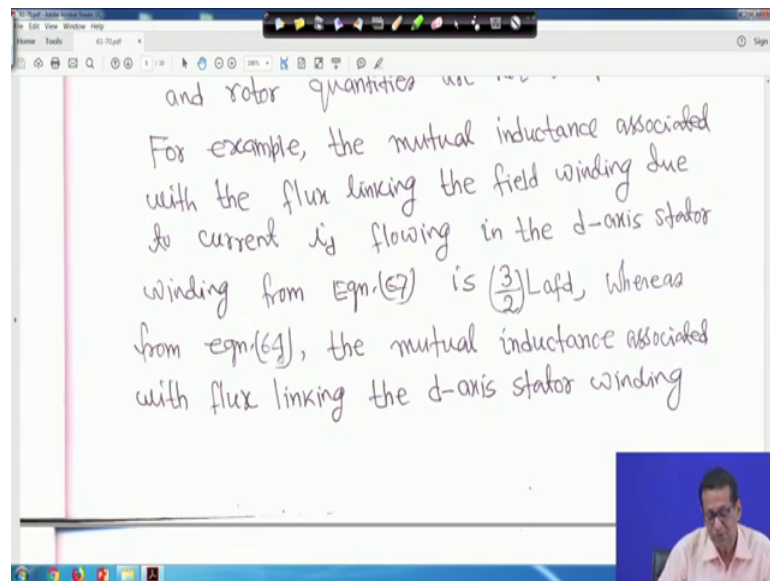 61-70.pdf - Adobe Acrobat Reader DC
File Edit View Window Help
Home Tools 61-70.pdf × Sign
and rotor quantities
For example, the mutual inductance associated
with the flux linking the field winding due
to current id flowing in the d-axis stator
winding from Eqn.(67) is (3/2) Lafd, whereas
from eqn.(64), the mutual inductance associated
with flux linking the d-axis stator winding